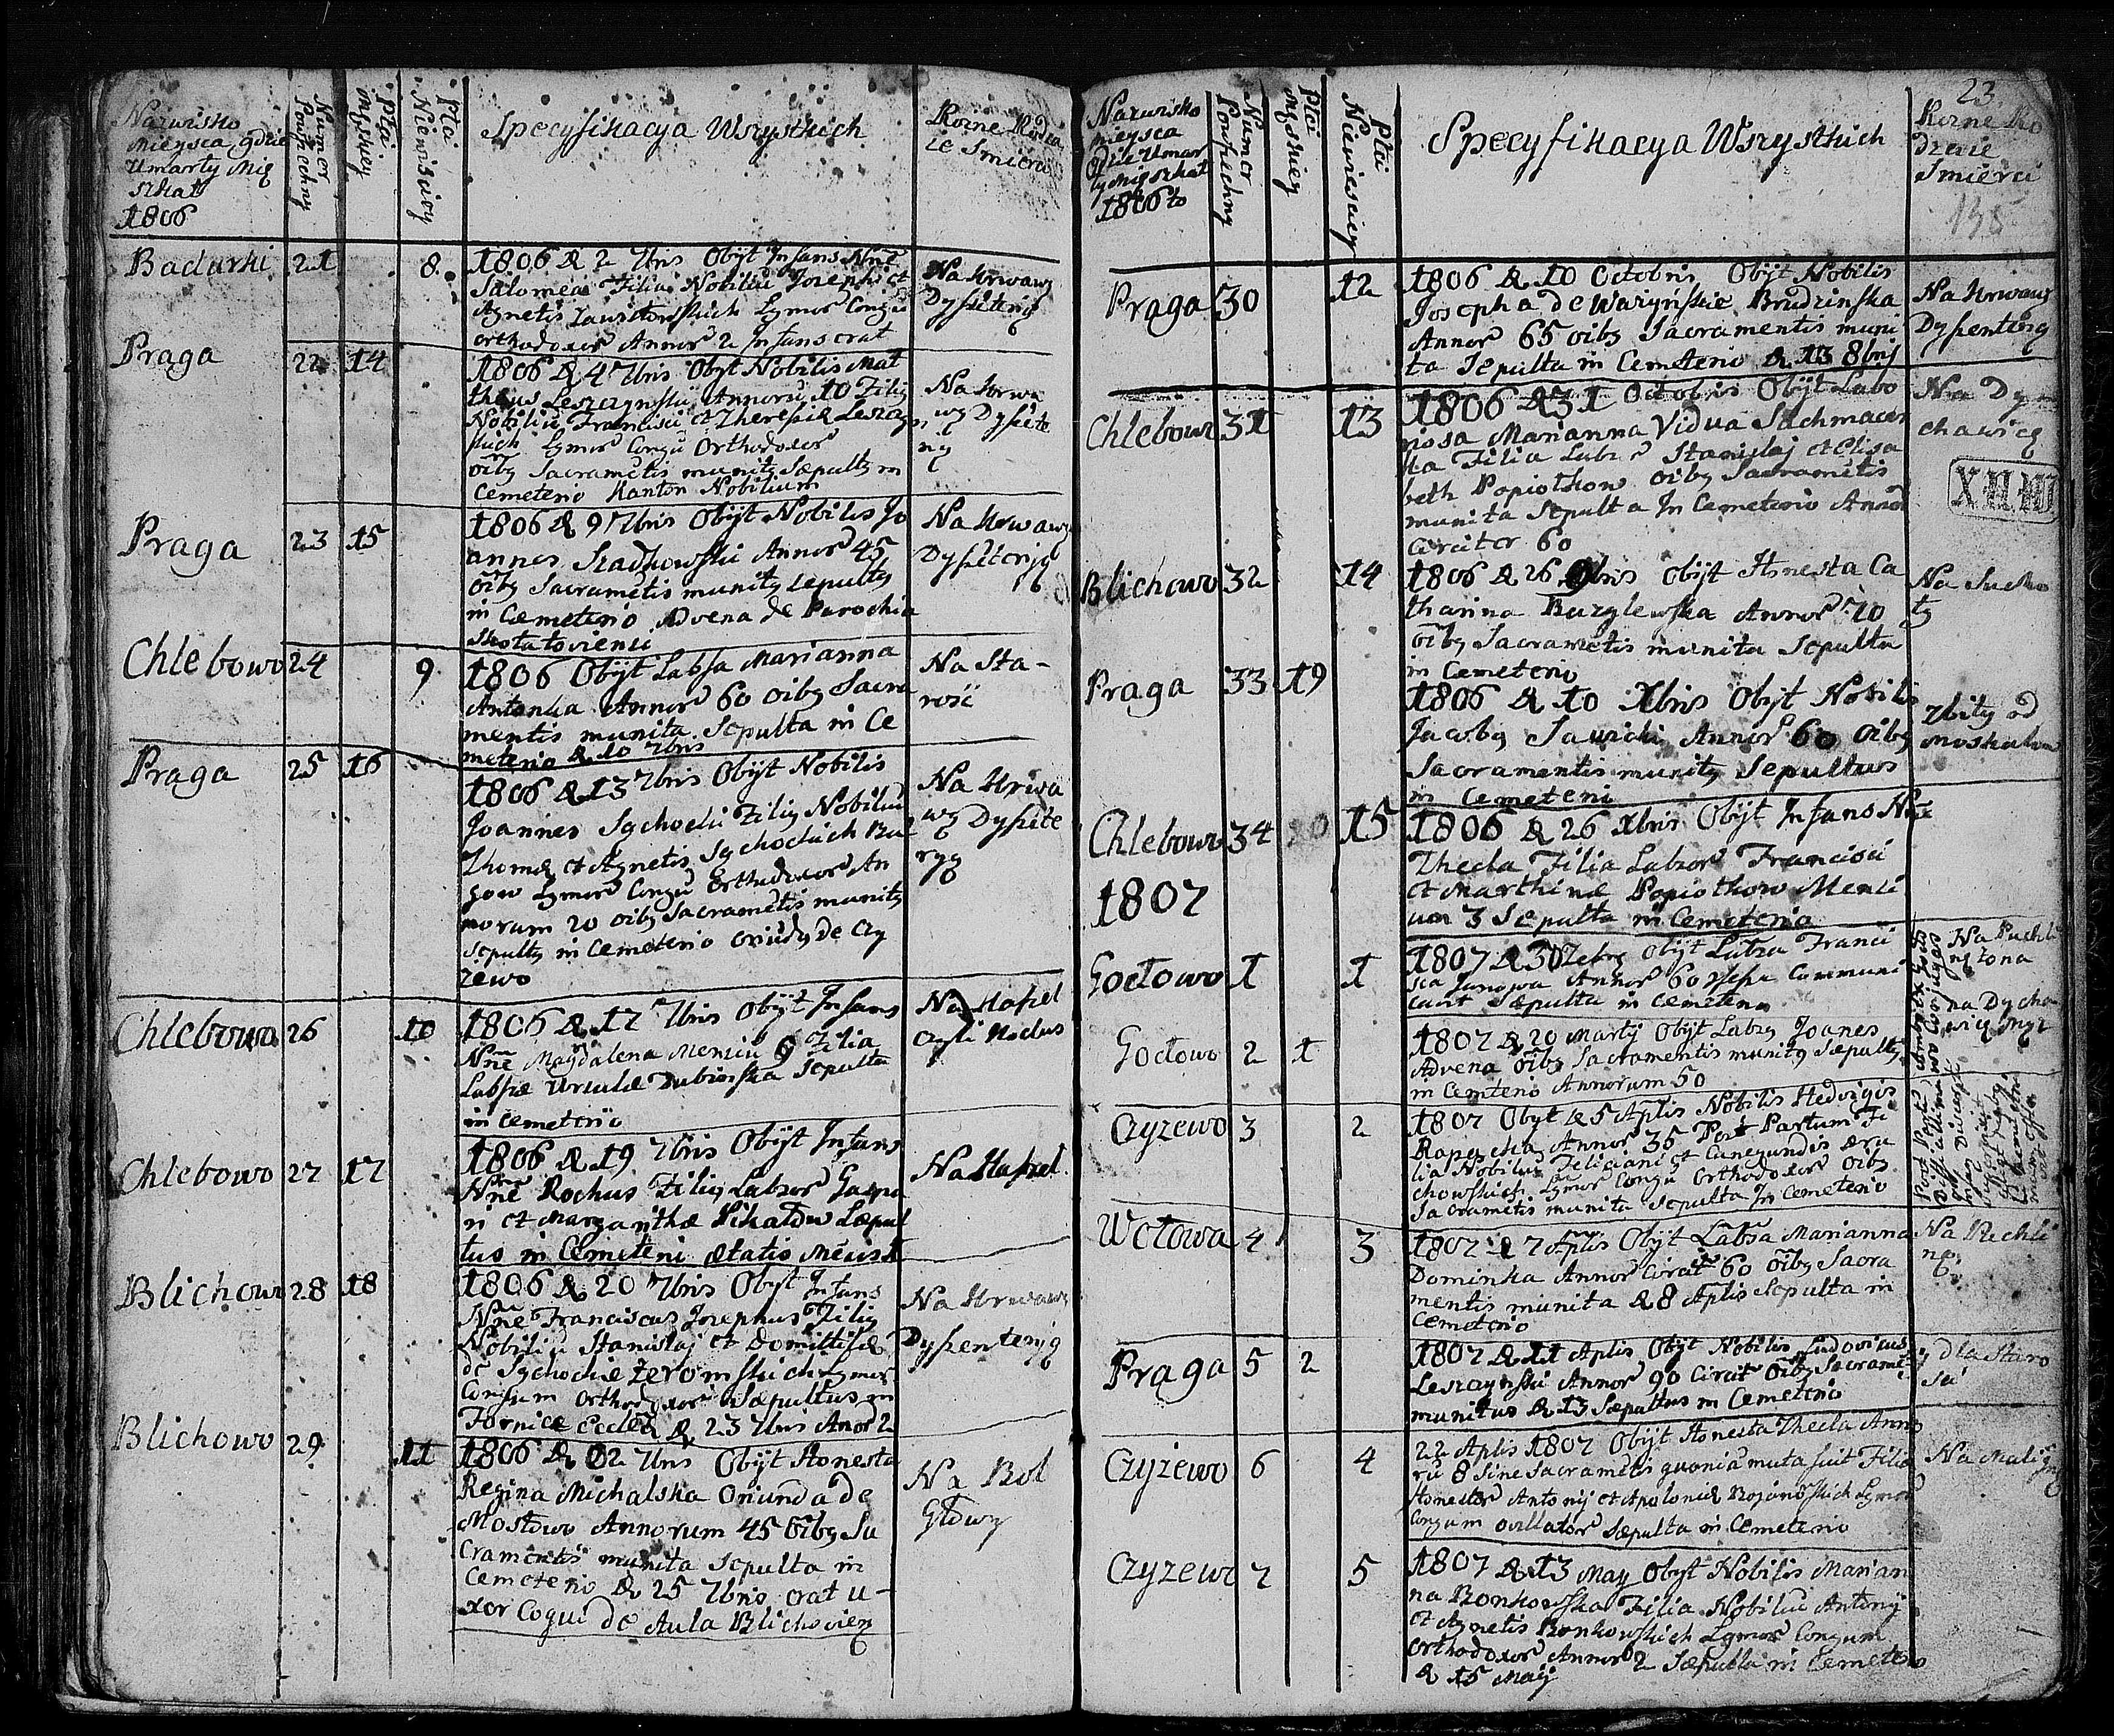 Nazwisko
Mieysca, gdzie
Umarły Mię
szkał
1806
Numer
Powszechny
Płci
Męskiey
Płci
Niewiesciey
Specyfikacya Wszystkich
Rozne Rodza
ie Smierci
Badurki 21 8
1806 d 2 7bris Obijt Infans Nñe
Salomea Filia Nobiliu Josephi et
Agnetis
orthodoxor Annor 2 Infans erat
Na krwawą
Dysenterię
Praga 22 14
1806 d 4 7bris Obijt Nobilis Mat
theus Leszczynski Annoru 10 Filig
Nobiliu Francisci et Theresiæ Leszczyn
skich Lgmor Congu Orthodoxor
oibg Sacrametis munitg Sæpultg in
Cemeterio Kanton Nobilium
Na krwa
wą Dysete
Praga 23 15
1806 d 9 7bris Obijt Nobilis Jo
annes Szadkowski Annor 45
oibg Sacrametis munitg sepultg
in Cæmeterio Advena de Parochia
Na krwawą
Dyseteriją
Chlebowo 24 9
1806 Obijt Labsa Marianna
Antonka Annor 60 oibg Sacra
mentis munita Sepulta in Ce
meterio d 10 7bris
Na Sta-
rość
Praga 25 16
1806 d 13 7bris Obijt Nobilis
Joannes Sychocki Filig Nobiliu
Thomæ et Agnetis Sychockich
Lgmor Congu Orthodoxor An
norum 20 oibg Sacrametis munitg
sepultg in Cemeterio oriudg de Czy
żewo
Na krwa
wą Dysete
ryą
Chlebowo 26 10
1806 d 17 7bris Obijt Infans
Nñe Magdalena Mensiu 9 Filia
Labsæ Ursulæ Dubinska Sepulta
in Cemeterio
Na Kaszel
czyli Koclus
Chlebowo 27 17
1806 d 19 7bris Obijt Infans
Nñe Rochus Filig Labror Gaspa
ri et Margarithæ Pikałow Sæpul
tus in Cemeteri ætatis
Na Kaszel
Blichowo 28 18
1806 d 20 7bris Obijt Infans
Nñe Franciscus Josephus Filig
Nobiliu Stanislaj et Domitillæ
de Sychockie Zeromskich Lgmor
Congum Orthodoxor Sæpultus in
Fornice Eccleæ d 23 7bris Anor 2
Na krwawą
Dysenteriją
Blichowo 29 11
1806 d 22 7bris Obijt Honesta
Regina Michalska Oriunda de
Mostowo Annorum 45 oibg Sa
cramentis munita Sepulta in
Cemeterio d 25 7bris erat u-
xor Coqui de Aula Blichovien
Na Bol
Głowy
Nazwisko
Mieysca
Gdzie Umar
ły Mięszkał
1806to
Numer
Powszechny
Płci
Męskiey
Płci
Niewiesciey
Specyfikacya Wszystkich
23
Rozne Ro
dzaie
Smierci
Praga 30 12
1806 d 10 Octobris Obijt Nobilis
Josepha deWażyńskie Brudzinska
Annor 65 oibg Sacramentis muni
ta Sepulta in Cemeterio d 13 8bris
Na krwawą
Dysenterią
Chlebowo 31 13
1806 d 31 Octobris Obijt Labo
riosa Marianna Vidua Sachmacen
ska Filia Labr Stanislaj et Elisa
beth Popiołkow oibg Sacrametis
munita Sepulta In Cemeterio Annor
circiter 60
Na Dy
chawicę
Blichowo 32 14
1806 d 26 9bris Obijt Honesta Ca
tharina Burglewska Annor 70
oibg Sacrametis munita Sepulta
in Cemeterio
Na Sucho
ty
Praga 33 19
1806 d 10 Xbris Obijt Nobilis
Jacobg Sawicki Annor 60 oibg
Sacramentis munitg Sepultus
in Cemeteri
zbity od
Moskalow
Chlebowo 34 15
1806 d 26 Xbris Obijt Infans Nñe
Thecla Filia Labror Francisci
et Marthinæ Popiołkow Mensi
um 3 Sepulta in Cemeterio
1807
Goctowo 1 1
1807 d 30 Obijt Labra Franci
sca Janowa Annor 60 Communi
cavit Sæpulta in Cemeterio
Na Puchli
Goctowo 2 1
1807 d 20 Martij Obijt Labrg Joanes
Advena oibg Sacramentis munitg Sæpultg
in Cemterio Annorum 50
na Dycha
wicę
Czyzewo 3 2
1807 Obijt d 5 Aplis Nobilis Hedvigis
Rapacka Annor 35 Post Partum Fi
lia Nobiliu Feliciani et Cunegundis
chowskich Lgmor Congu Orthodoxor oibg
Sacrametis munita Sepulta In Cemeterio
Wctowa 4 3
1807 d 7 Aplis Obijt Labsa Marianna
Dominka Annor Circit 60 oibg Sacra
mentis munita d 8 Aplis Sepulta in
Cemeterio
Na Puchli
nę
Praga 5 2
1807 d 11 Aplis Obijt Nobilis Ludovicus
Leszczynski Annor 90 Circit oibg Sacrame
munitus d 13 Sæpultus in Cemeterio
dla Staro
sci
Czyzewo 6 4
22 Aplis 1807 Obijt Honesta Thecla Anno
ru 8 Sine Sacrametis quonia muta fuit Filia
Honestor Antonij et Apoloniæ Rojanoskich Lgmor
Congum Sæpulta in Cemeterio
Na Malignę
Czyzewo 7 5
1807 d 13 Maij Obijt Nobilis Marian
na Bonkowska Filia Nobiliu Antonij
et Agnetis Bonkowskich Lgmor Congum
Orthodoxor Annor 2 Sæpulta in Cemeterio
d 15 Maij